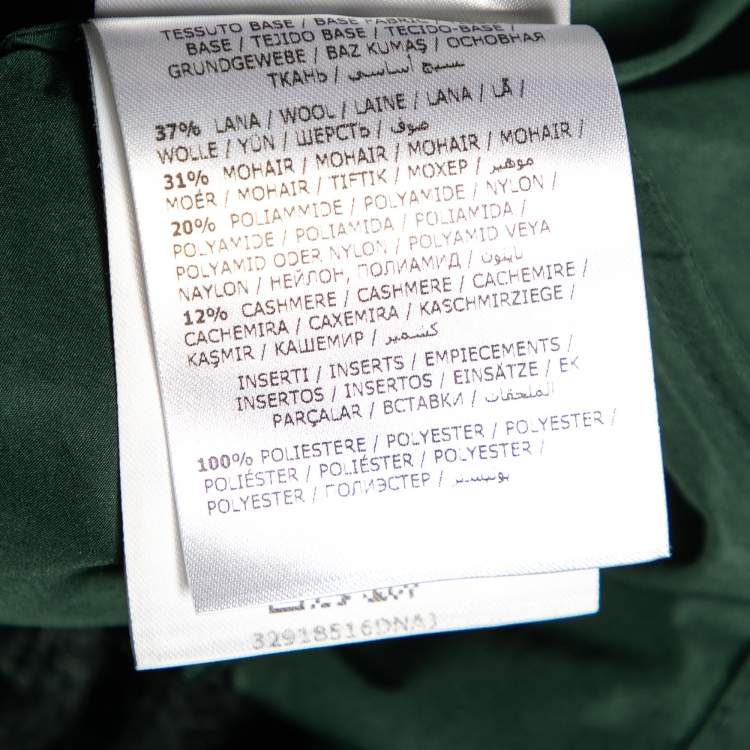 TESSUTO BASE / BASE FABRIC /
BASE / TEJIDO BASE / TECIDO-BASE /
GRUNDGEWEBE / BAZ KUMAŞ / ОСНОВНАЯ
ТКАНЬ / نسيج أساسي
37% LANA / WOOL / LAINE / LANA / LÃ /
WOLLE / YÜN / ШЕРСТЬ / صوف
31% MOHAIR / MOHAIR / MOHAIR / MOHAIR /
MOÉR / MOHAIR / TIFTIK / МОХЕР / موهير
20% POLIAMMIDE / POLYAMIDE / NYLON /
POLYAMIDE / POLIAMIDA / POLIAMIDA /
POLYAMID ODER NYLON / POLYAMID VEYA
NAYLON / НЕЙЛОН, ПОЛИАМИД / نايلون
12% CASHMERE / CASHMERE / CACHEMIRE /
CACHEMIRA / CAXEMIRA / KASCHMIRZIEGE /
KAŞMIR / КАШЕМИР / كشمير
INSERTI / INSERTS / EMPIECEMENTS /
INSERTOS / INSERTOS / EINSÄTZE / EK
PARÇALAR / ВСТАВКИ / الملحقات
100% POLIESTERE / POLYESTER / POLYESTER /
POLIÉSTER / POLIÉSTER / POLYESTER /
POLYESTER / ПОЛИЭСТЕР / بوليستر
32918516DNAJ